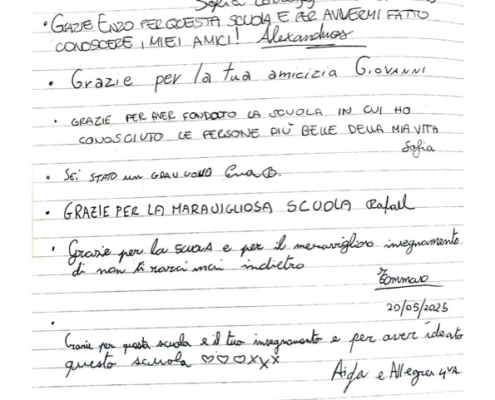 Sofia
• GRAZIE ENZO PER QUESTA SCUOLA E PER AVVERMI FATTO
CONOSCERE I MIEI AMICI! Alexandros
• Grazie per la tua amicizia GIOVANNI
• GRAZIE PER AVER FONDATO LA SCUOLA IN CUI HO
CONOSCIUTO LE PERSONE PIÙ BELLE DELLA MIA VITA
Sofia
• SEI STATO UN GRAN UOMO
• GRAZIE PER LA MARAVIGLIOSA SCUOLA Rafael
• Grazie per la scuola e per il meraviglioso insegnamento
di non tirarci mai indietro
Tommaso
20/05/2025
•
Grazie per questa scuola e il tuo insegnamento e per aver ideato
questo scuola ♡♡♡xxx
Aida e Allegra 4VA